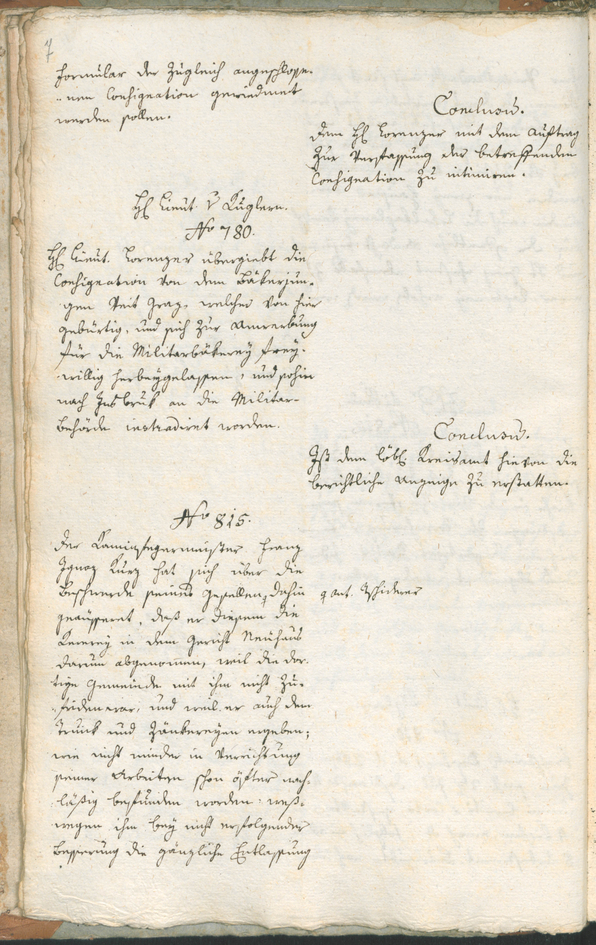 7
Formular der zugleich angeschlosse-
nen Consignation gewidmet
werden sollen.
Conclusũ.
Dem H Lorenzer mit dem Auftrag
zur Verfassung der betreffenden
Consignation zu intimiren.
H Lieut. v Kuglern.
No 780.
H Lieut. Lorenzer übergiebt die
Consignation von dem Bäkerjun-
gen Veit Graz, welcher von hier
gebürtig, und sich zur Anwerbung
für die Militarbäkerey frey-
willig herbeygelassen, und sohin
nach Insbruk an die Militar-
behörde instradirt worden.
Conclusũ.
Ist dem löbl Kreisamt hievon die
berichtliche Anzeige zu erstatten.
No 815.
Der Kaminfegermeister Franz
Ignaz Kurz hat sich über die
Beschwerde seines Gesellen, dahin
geäussert, daß er diesem die
Kererey in dem Gericht Neuhaus
darum abgenomen, weil die dor-
tige Gemeinde mit ihm nicht zu-
frieden war, und weil er auch dem
Trunk und Zänkereyen ergeben;
wie nicht minder in Verrichtung
seiner Arbeiten schon öfter nach-
läßig befunden worden: weß-
wegen ihm bey nicht erfolgender
Besserung die gänzliche Entlassung
Ant. Tschiderer